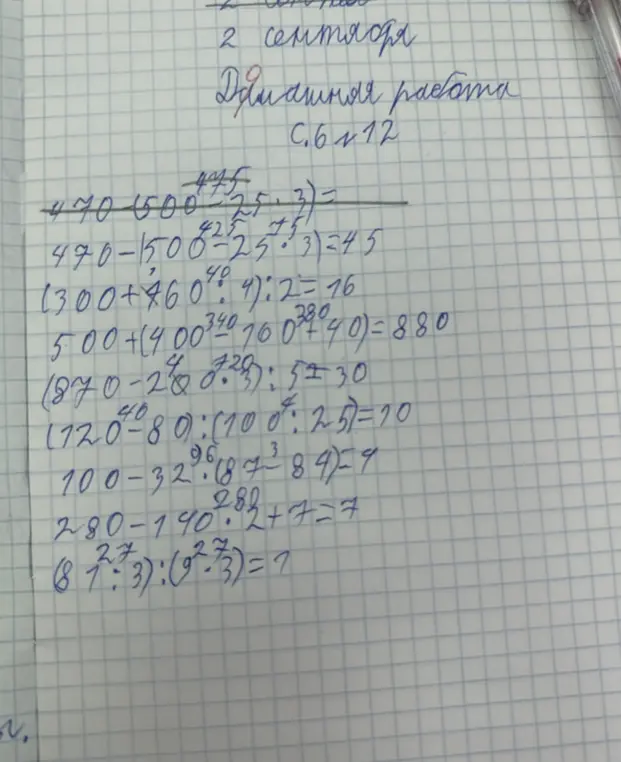 2 сентября
Домашняя работа
С.6 №12
475
470-(500-25·3)=
425 75
470-(500-25·3)=45
40
(300+160:4):2=16
340 380
500+(400-160+40)=880
720
(870-240·3):5=30
40 4
(120-80):(100:25)=10
96 3
100-32·(87-84)=4
280
280-140·2+7=7
27 27
(81:3):(9·3)=1